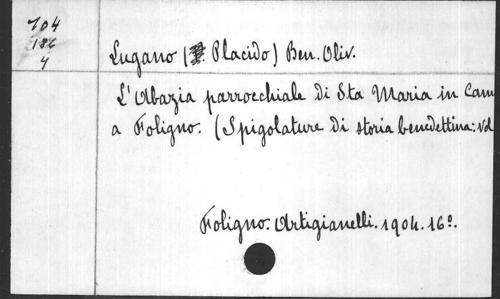 704
186
4
Lugano (P. Placido) Ben. Oliv.
L'Abazia parrocchiale di Sta Maria in Cam
a Foligno. (Spigolature di storia benedettina: Vol
Foligno. Artigianelli. 1904. 16º.